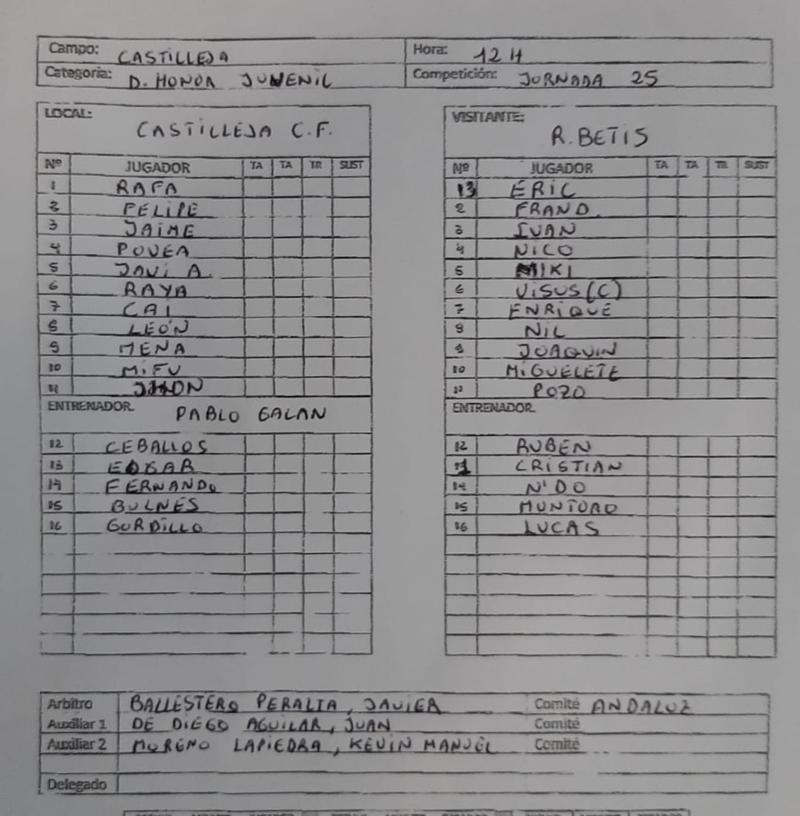 Campo: CASTILLEJA Hora: 12 H
Categoría: D. HONOR JUVENIL Competición: JORNADA 25
LOCAL: CASTILLEJA C.F.
Nº JUGADOR TA TA TR SUST
1 RAFA
2 FELIPE
3 JAIME
4 POVEA
5 JAVI A.
6 RAYA
7 CAI
8 LEÓN
9 MENA
10 MIFU
11 JHON
ENTRENADOR PABLO GALAN
12 CEBALLOS
13 EDGAR
14 FERNANDO
15 BULNES
16 GORDILLO
VISITANTE: R. BETIS
Nº JUGADOR TA TA TR SUST
13 ERIC
2 FRAND.
3 IVAN
4 NICO
5 MIKI
6 VISUS (C)
7 ENRIQUE
8 NIL
9 JOAQUIN
10 MIGUELETE
11 POZO
ENTRENADOR
12 RUBEN
1 CRISTIAN
14 N'DO
15 MONTORO
16 LUCAS
Arbitro BALLESTERO PERALTA, JAVIER Comité ANDALUZ
Auxiliar 1 DE DIEGO AGUILAR, JUAN Comité
Auxiliar 2 MORENO LAPIEDRA, KEVIN MANUEL Comité
Delegado